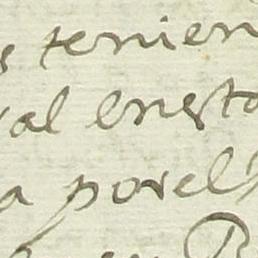 s tenien
ral enesta
a porel